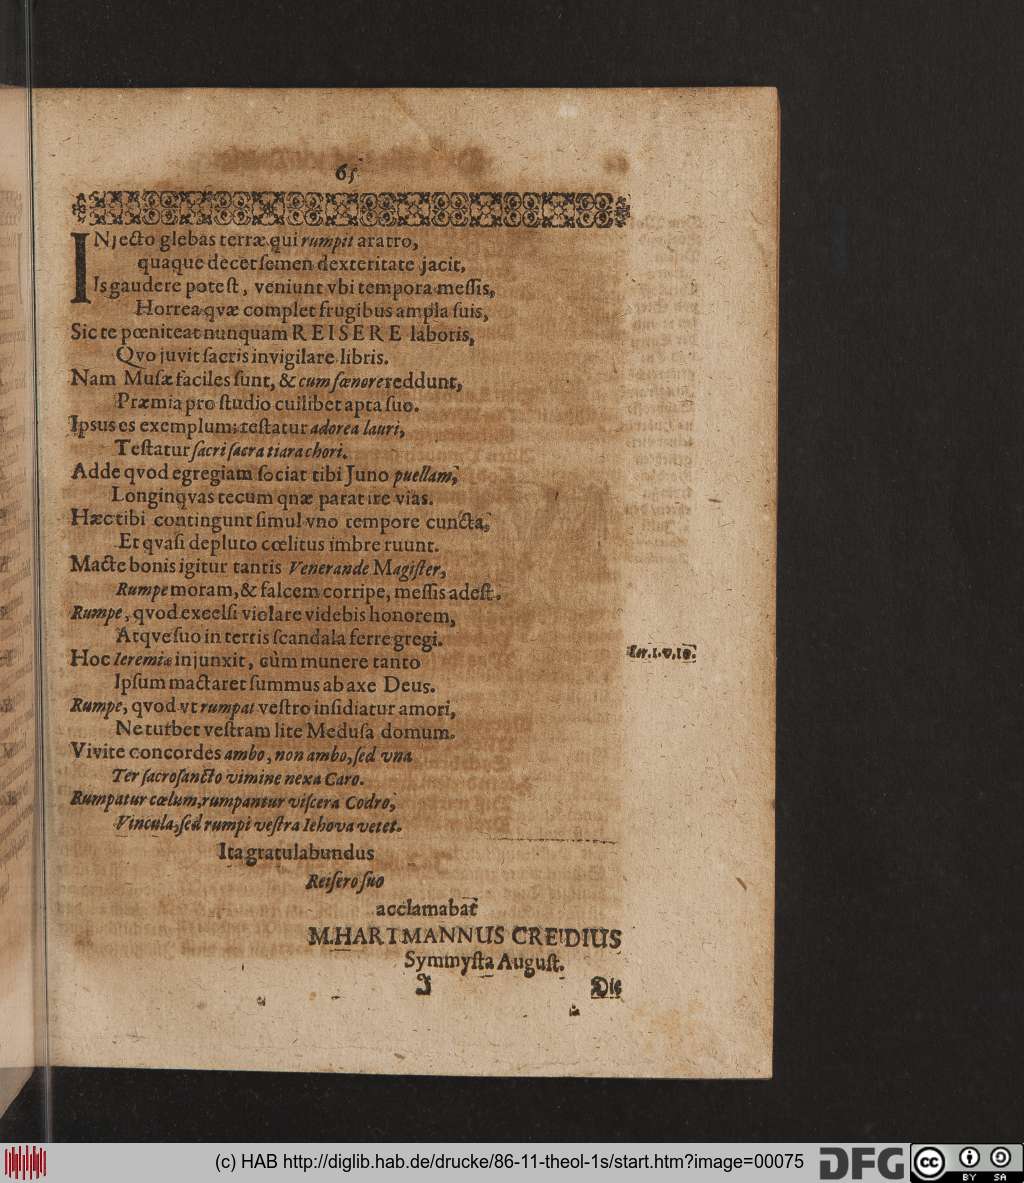 65
INjecto glebas terræ qui rumpit aratro,
quaque decet semen dexteritate jacit,
Is gaudere potest, veniunt vbi tempora messis,
Horrea qvæ complet frugibus ampla suis,
Sic te pœniteat nunquam REISERE laboris,
Qvo juvit sacris invigilare libris.
Nam Musæ faciles sunt, & cum fœnore reddunt,
Præmia pro studio cuilibet apta suo.
Ipsus es exemplum: testatur adorea lauri,
Testatur sacri sacra tiara chori.
Adde qvod egregiam sociat tibi Juno puellam,
Longinqvas tecum qnæ parat ire vias.
Hæc tibi contingunt simul vno tempore cuncta,
Et qvasi depluto cœlitus imbre ruunt.
Macte bonis igitur tantis Venerande Magister,
Rumpe moram, & falcem corripe, messis adest.
Rumpe, qvod excelsi violare videbis honorem,
Atqve suo in terris scandala ferre gregi.
Hoc Ieremiæ injunxit, cùm munere tanto
Ier. 1. v. 10.
Ipsum mactaret summus ab axe Deus.
Rumpe, qvod vt rumpat vestro insidiatur amori,
Ne turbet vestram lite Medusa domum.
Vivite concordes ambo, non ambo, sed vna
Ter sacrosancto vimine nexa Caro.
Rumpatur cœlum, rumpantur viscera Codro,
Vincula, sed rumpi vestra Iehova vetet.
Ita gratulabundus
Reisero suo
acclamabat
M. HARTMANNUS CREIDIUS
Symmysta August.
I
Die
(c) HAB http://diglib.hab.de/drucke/86-11-theol-1s/start.htm?image=00075
DFG
cc
BY
SA